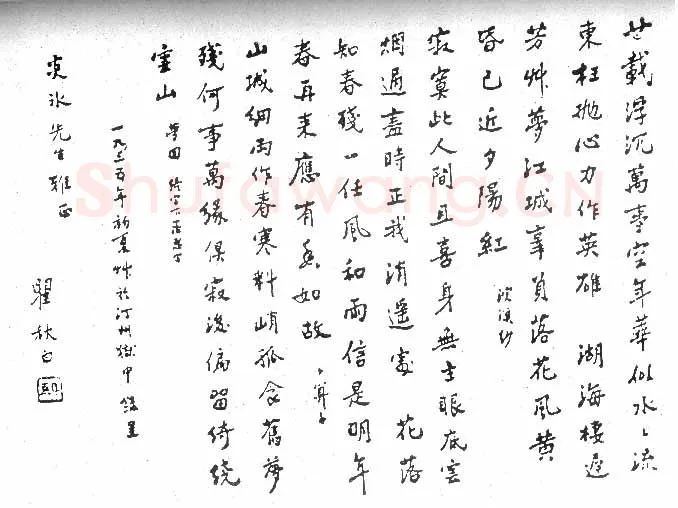 廿載浮沉萬事空年華似水〻流
東枉拋心力作英雄 湖海棲遲
芳艸夢江城辜負落花風黃
昏已近夕陽紅 浣溪紗
寂寞此人間且喜身無主眼底雲
烟過盡時正我消遥處 花落
知春殘一任風和雨信是明年
春再来應有香如故 卜算子
山城細雨作春寒料峭孤衾舊夢
殘何事萬緣俱寂後偏留綺繞
靈山 夢回
一九三五年初夏 於汀州獄中錄呈
炎冰先生雅正
瞿秋白
Shufawang.CN